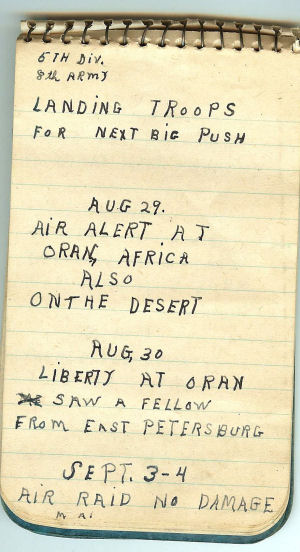 5TH Div.
8th ARMY
LANDING TROOPS
FOR NEXT BIG PUSH
AUG 29.
AIR ALERT AT
ORAN, AFRICA
ALSO
ON THE DESERT
AUG, 30
LIBERTY AT ORAN
SAW A FELLOW
FROM EAST PETERSBURG
SEPT. 3-4
AIR RAID NO DAMAGE